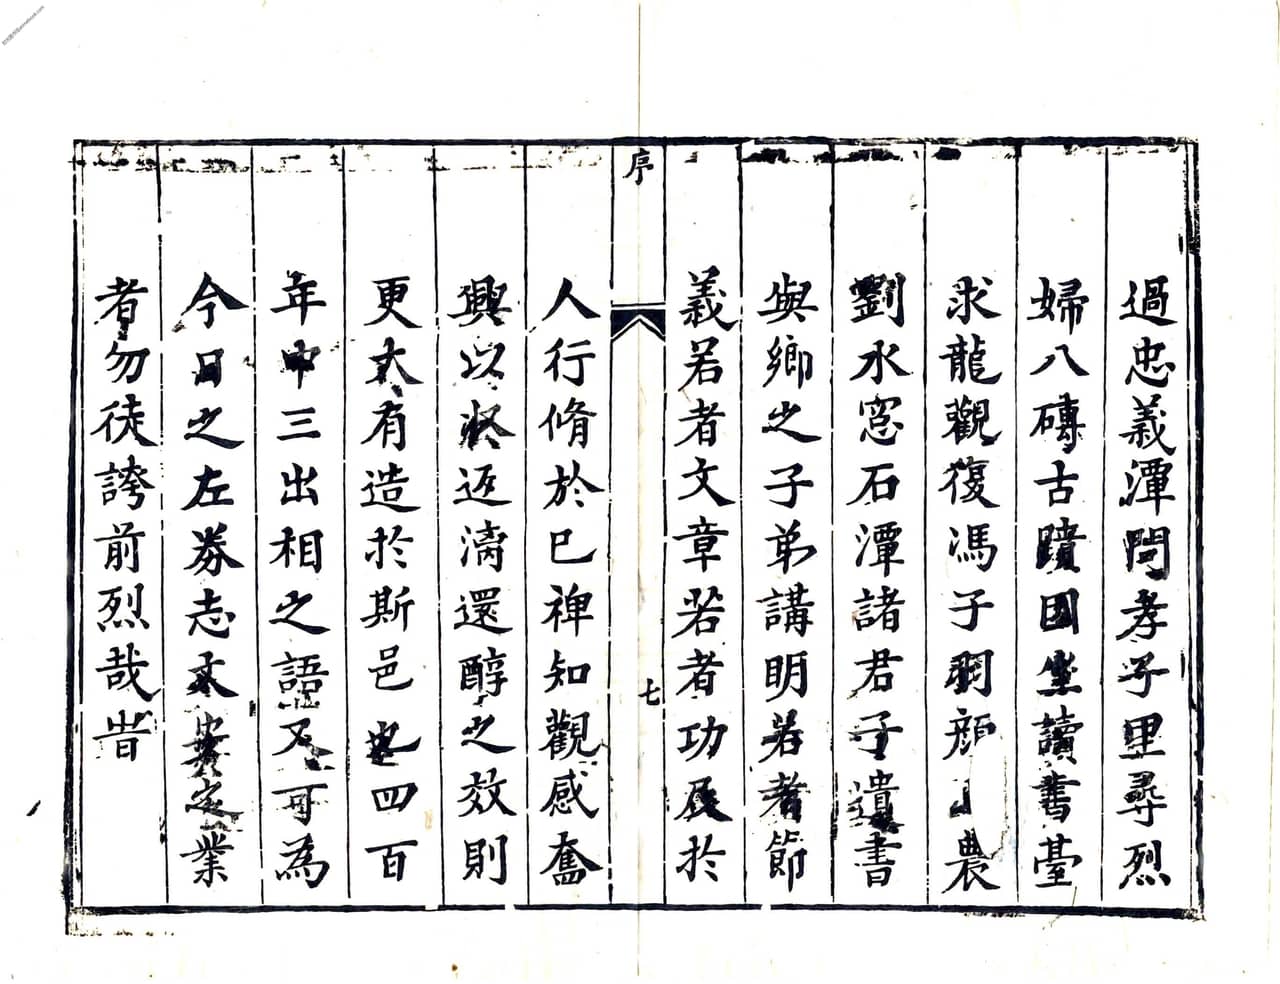 過忠義潭問孝子里尋烈
婦八磚古蹟國生讀書臺
求龍觀復馮子羽顔農
劉水窓石潭諸君子遺書
與鄉之子弟講明若者節
義若者文章若者功展於
序
七
人行脩於巳禆知觀感奮
興以將返漓還醇之效則
更大有造於斯邑也四百
年中三出相之語又可為
今日之左券志定業
者勿徒誇前烈哉旹